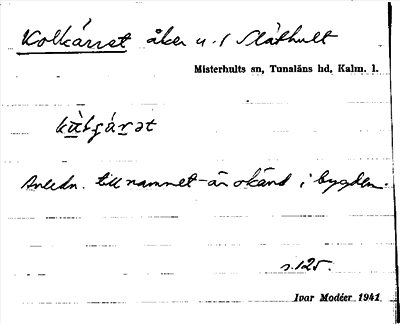 Kolkärret åker u. f Slåthult
Misterhults sn, Tunaläns hd, Kalm. l.
Anledn. till namnet är okänd i bygden.
s. 125.
Ivar Modéer 1941